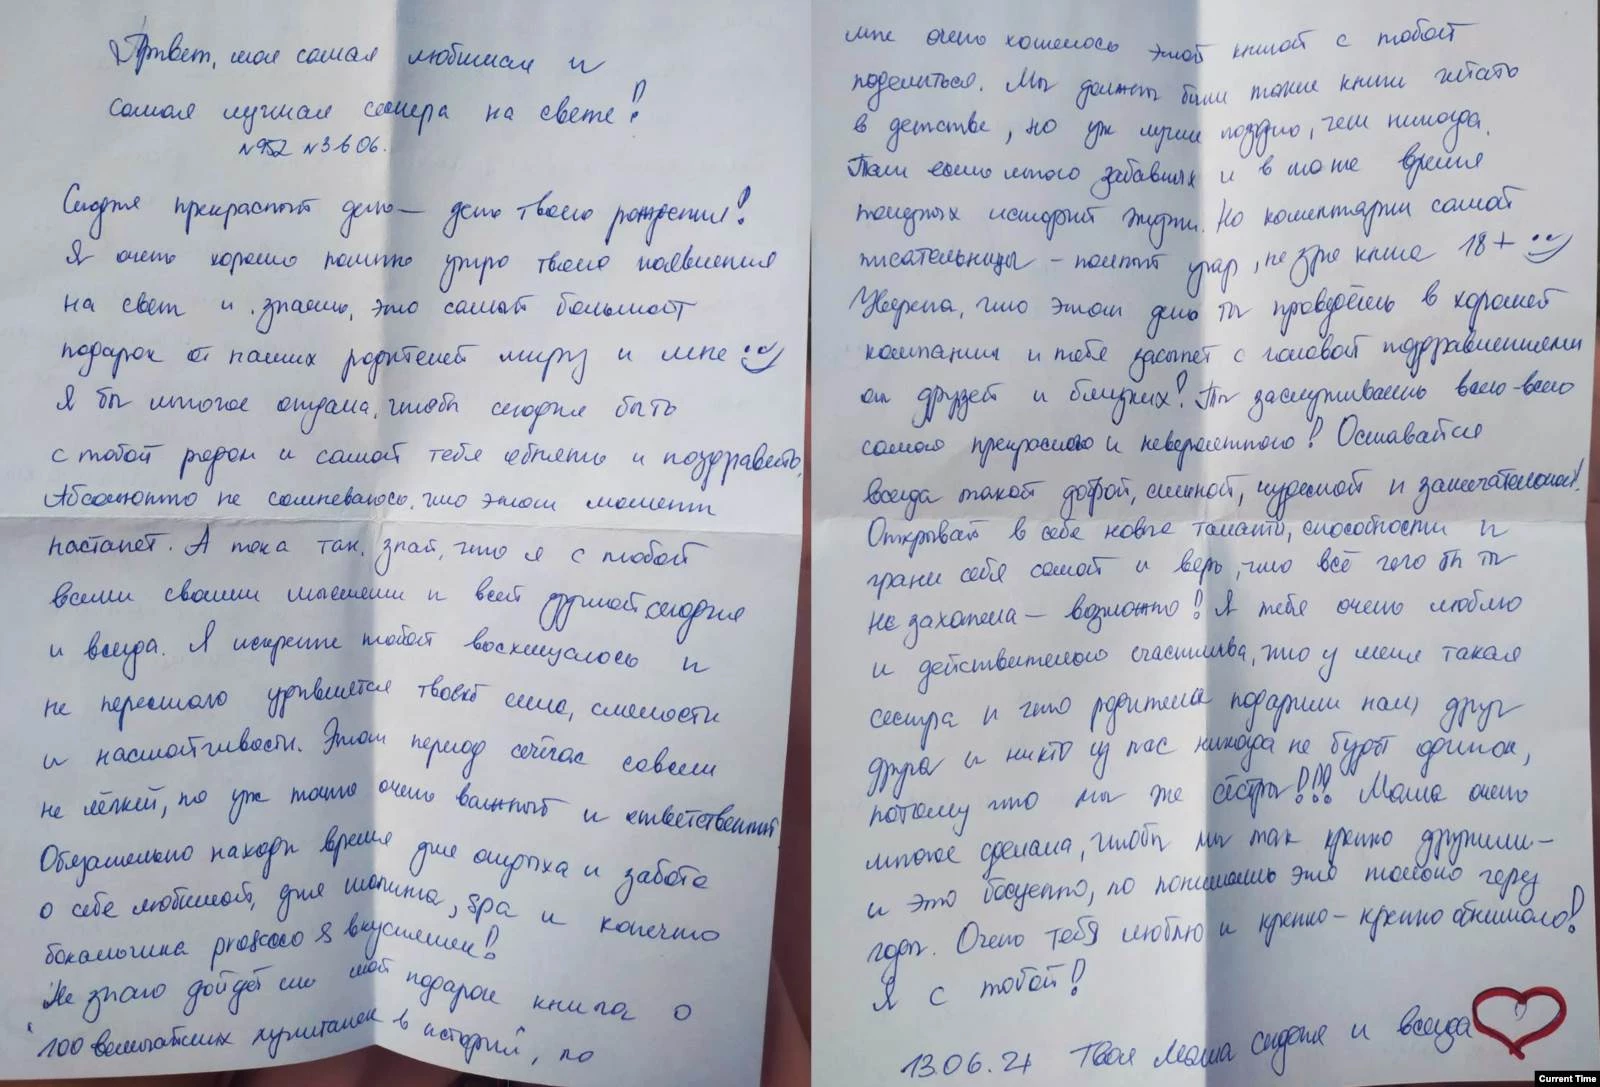 Привет, моя самая любимая и
самая лучшая сестра на свете!
№3 в 06.
Сегодня прекрасный день — день твоего рождения!
Я очень хорошо помню утро твоего появления
на свет и, знаешь, это самый большой
подарок от наших родителей миру и мне
Я бы многое отдала, чтобы сегодня быть
с тобой рядом и самой тебя обнять и поздравить.
Абсолютно не сомневаюсь, что этот момент
настанет. А пока так, знай, что я с тобой
всеми своими мыслями и всей душой сегодня
и всегда. Я искренне тобой восхищаюсь и
не перестаю удивляться твоей силе, смелости
и настойчивости. Этот период сейчас совсем
не лёгкий, но уж точно очень важный и ответственный
Обязательно находи время для отдыха и забота
о себе любимой, для шопинга, spa и конечно
бокальчика prosecco & вкусняшек!
Не знаю дойдёт ли мой подарок книга о
"100 величайших в истории", но
мне очень хотелось этой книгой с тобой
поделиться. Мы должны были такие книги читать
в детстве, но уж лучше поздно, чем никогда.
Там есть много забавных и в то же время
историй жизни. Но коментарии самой
писательницы – полный угар, не зря книга 18+
Уверена, что этот день ты проведёшь в хорошей
компании и тебя засыпет с головой поздравлениями
от друзей и близких! Ты заслуживаешь всего-всего
самого прекрасного и невероятного! Оставайся
всегда такой доброй, сильной, чудесной и замечательной!
Открывай в себе новые таланты, способности и
грани себя самой и верь, что всё чего бы ты
не захотела – возможно! Я тебя очень люблю
и действительно счастлива, что у меня такая
сестра и что родители подарили нам друг
друга и никто из нас никогда не будет одинок,
потому что мы же сёстры!!! Мама очень
многое сделала, чтобы мы так крепко дружили –
и это бесценно, но понимаешь это только через
годы. Очень тебя люблю и крепко-крепко обнимаю!
Я с тобой!
13.06.24 Твоя Маша сегодня и всегда
Current Time